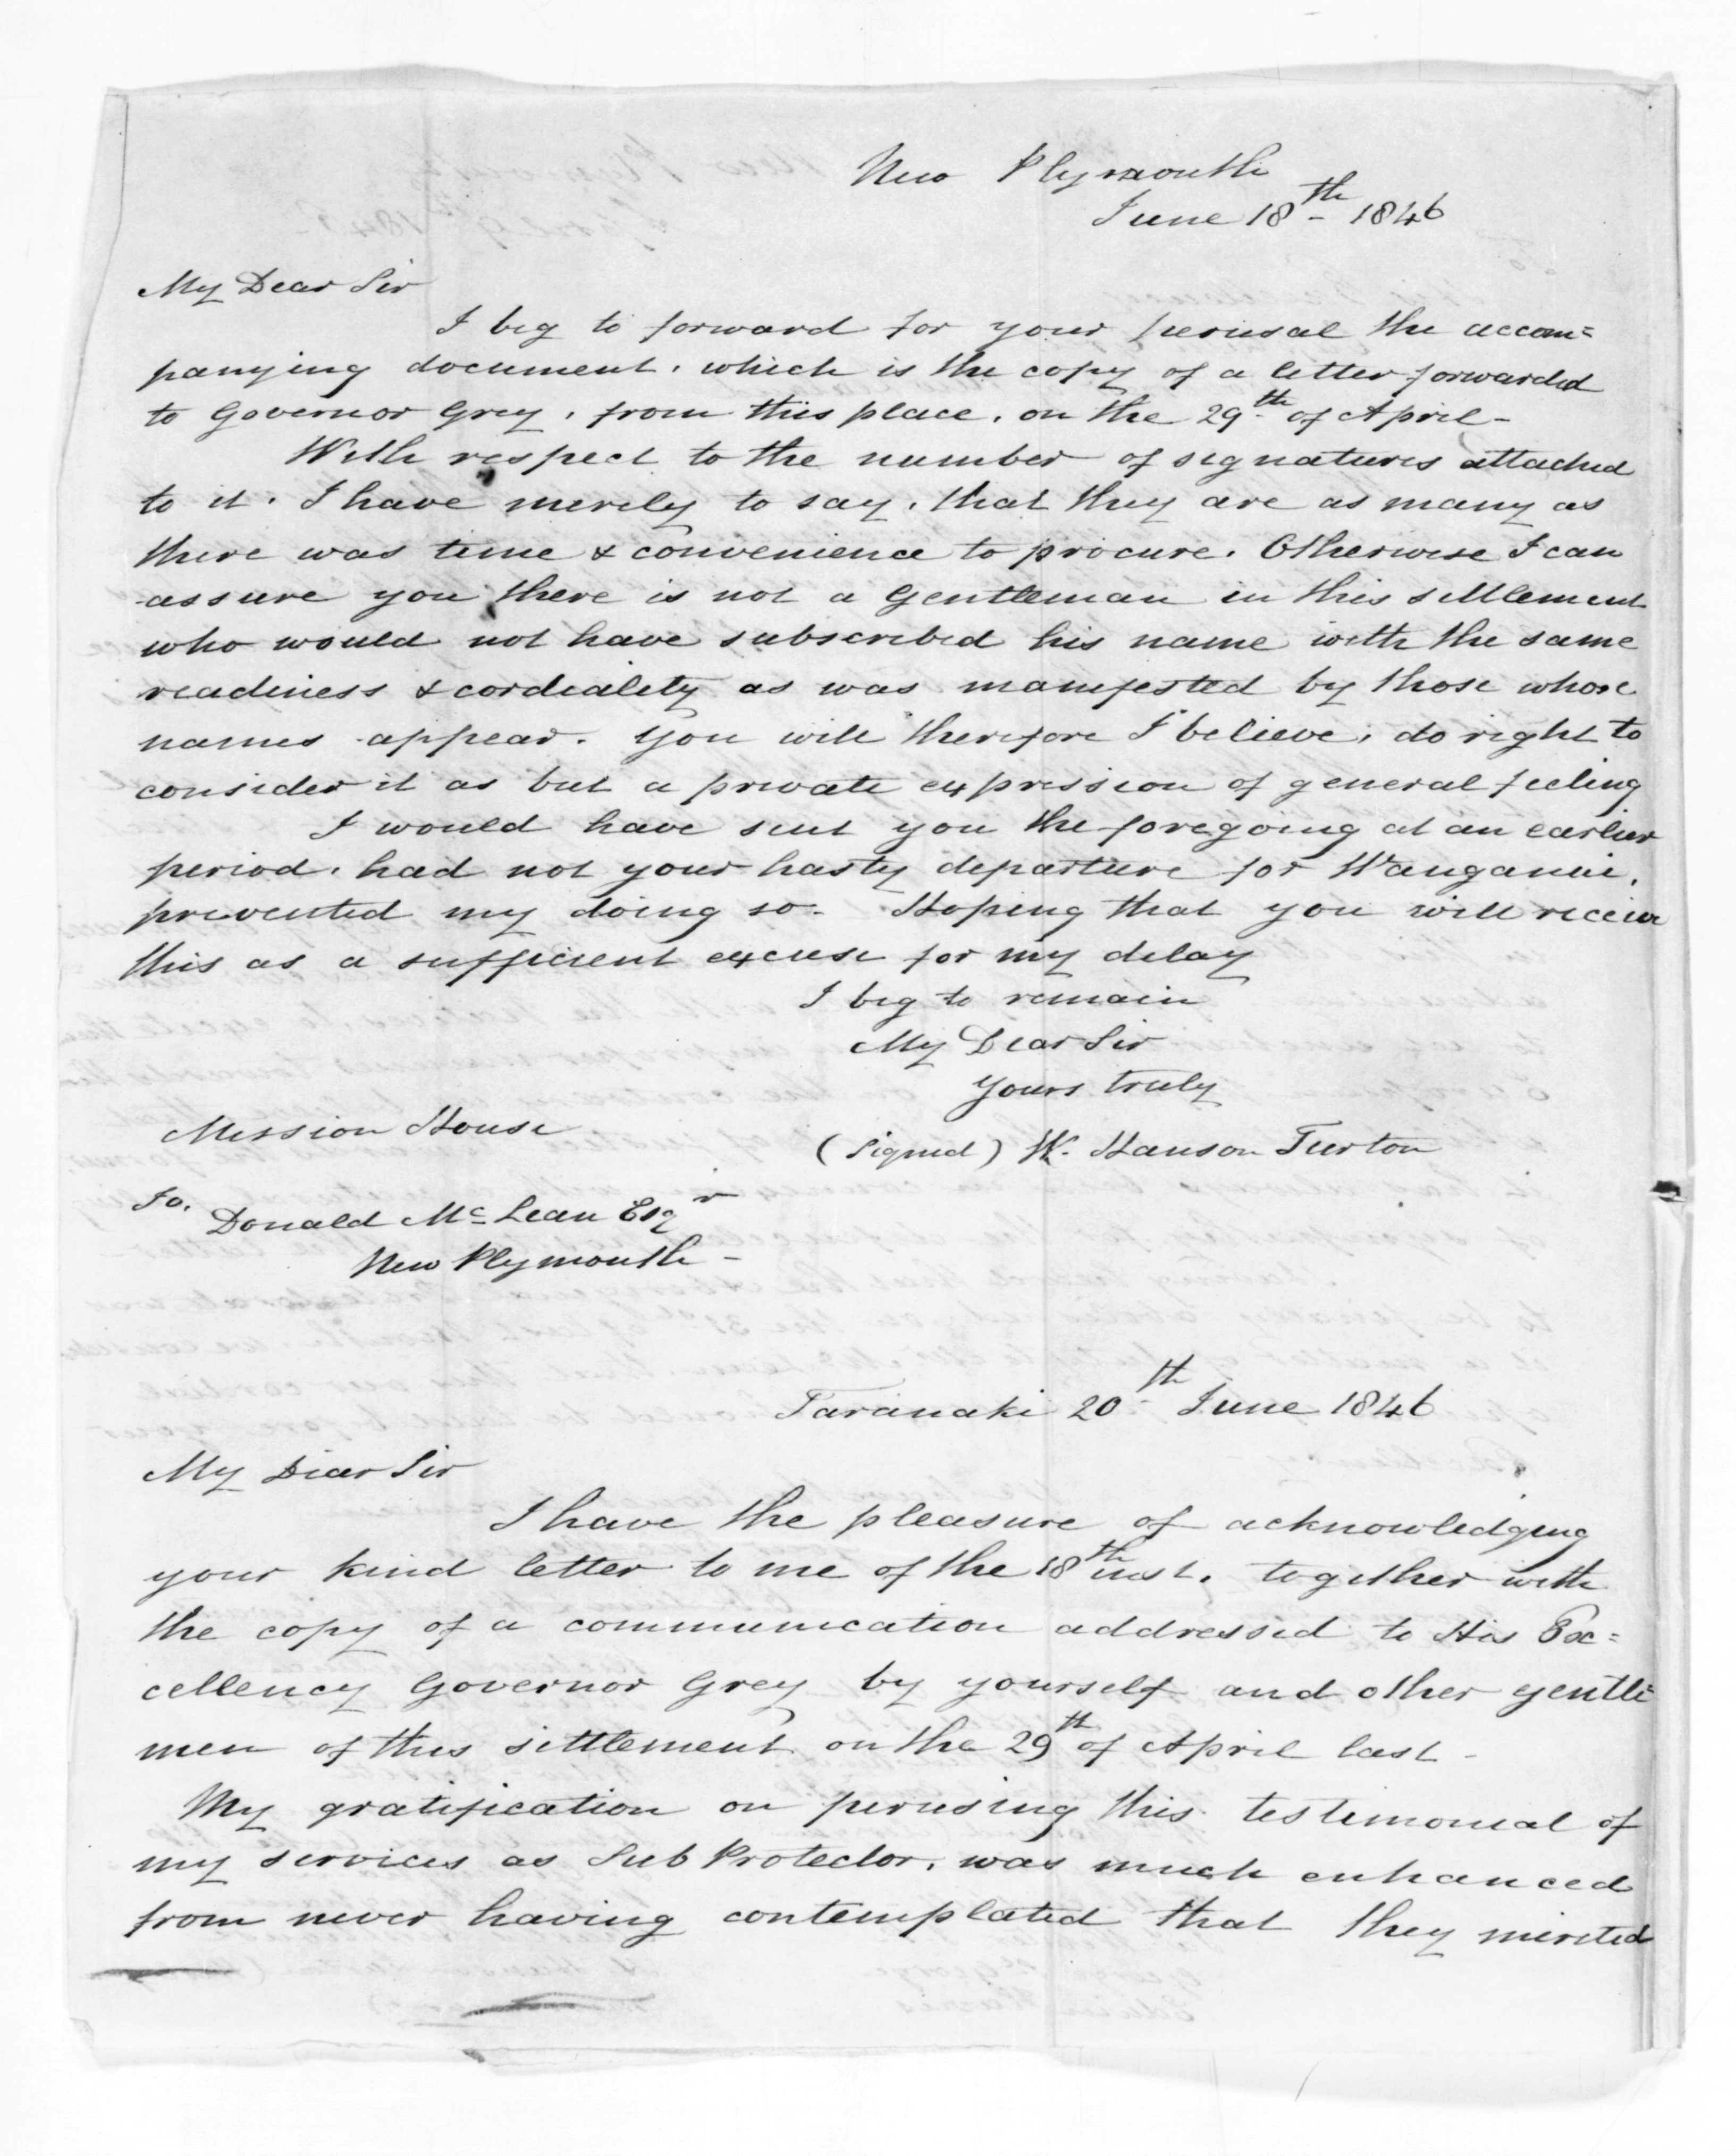 New Plymouth
June 18th - 1846
My Dear Sir
I beg to forward for your perusal the accom=
panying document, which is the copy of a letter forwarded
to Governor Grey, from this place, on the 29th of April -
With respect to the number of signatures attached
to it. I have merely to say, that they are as many as
there was time & convenience to procure. Otherwise I can
assure you there is not a Gentleman in this settlement
who would not have subscribed his name with the same
readiness & cordiality as was manifested by those whose
names appear. You will therefore I believe, do right to
consider it as but a private expression of general feeling
I would have sent you the foregoing at an earlier
period, had not your hasty departure for Wanganui,
prevented my doing so - Hoping that you will receive
this as a sufficient excuse for my delay
I beg to remain
My Dear Sir
Yours truly
Mission House
(Signed) W. Hanson Turton
To,
Donald McLean Esqr
New Plymouth -
Taranaki 20th June 1846
My Dear Sir
I have the pleasure of acknowledging
your kind letter to me of the 18th inst. together with
the copy of a communication addressed to His Ex=
cellency Governor Grey by yourself and other gentle
men of this settlement on the 29th of April last -
My gratification on perusing this testimonial of
my services as Sub Protector, was much enhanced
from never having contemplated that they merited